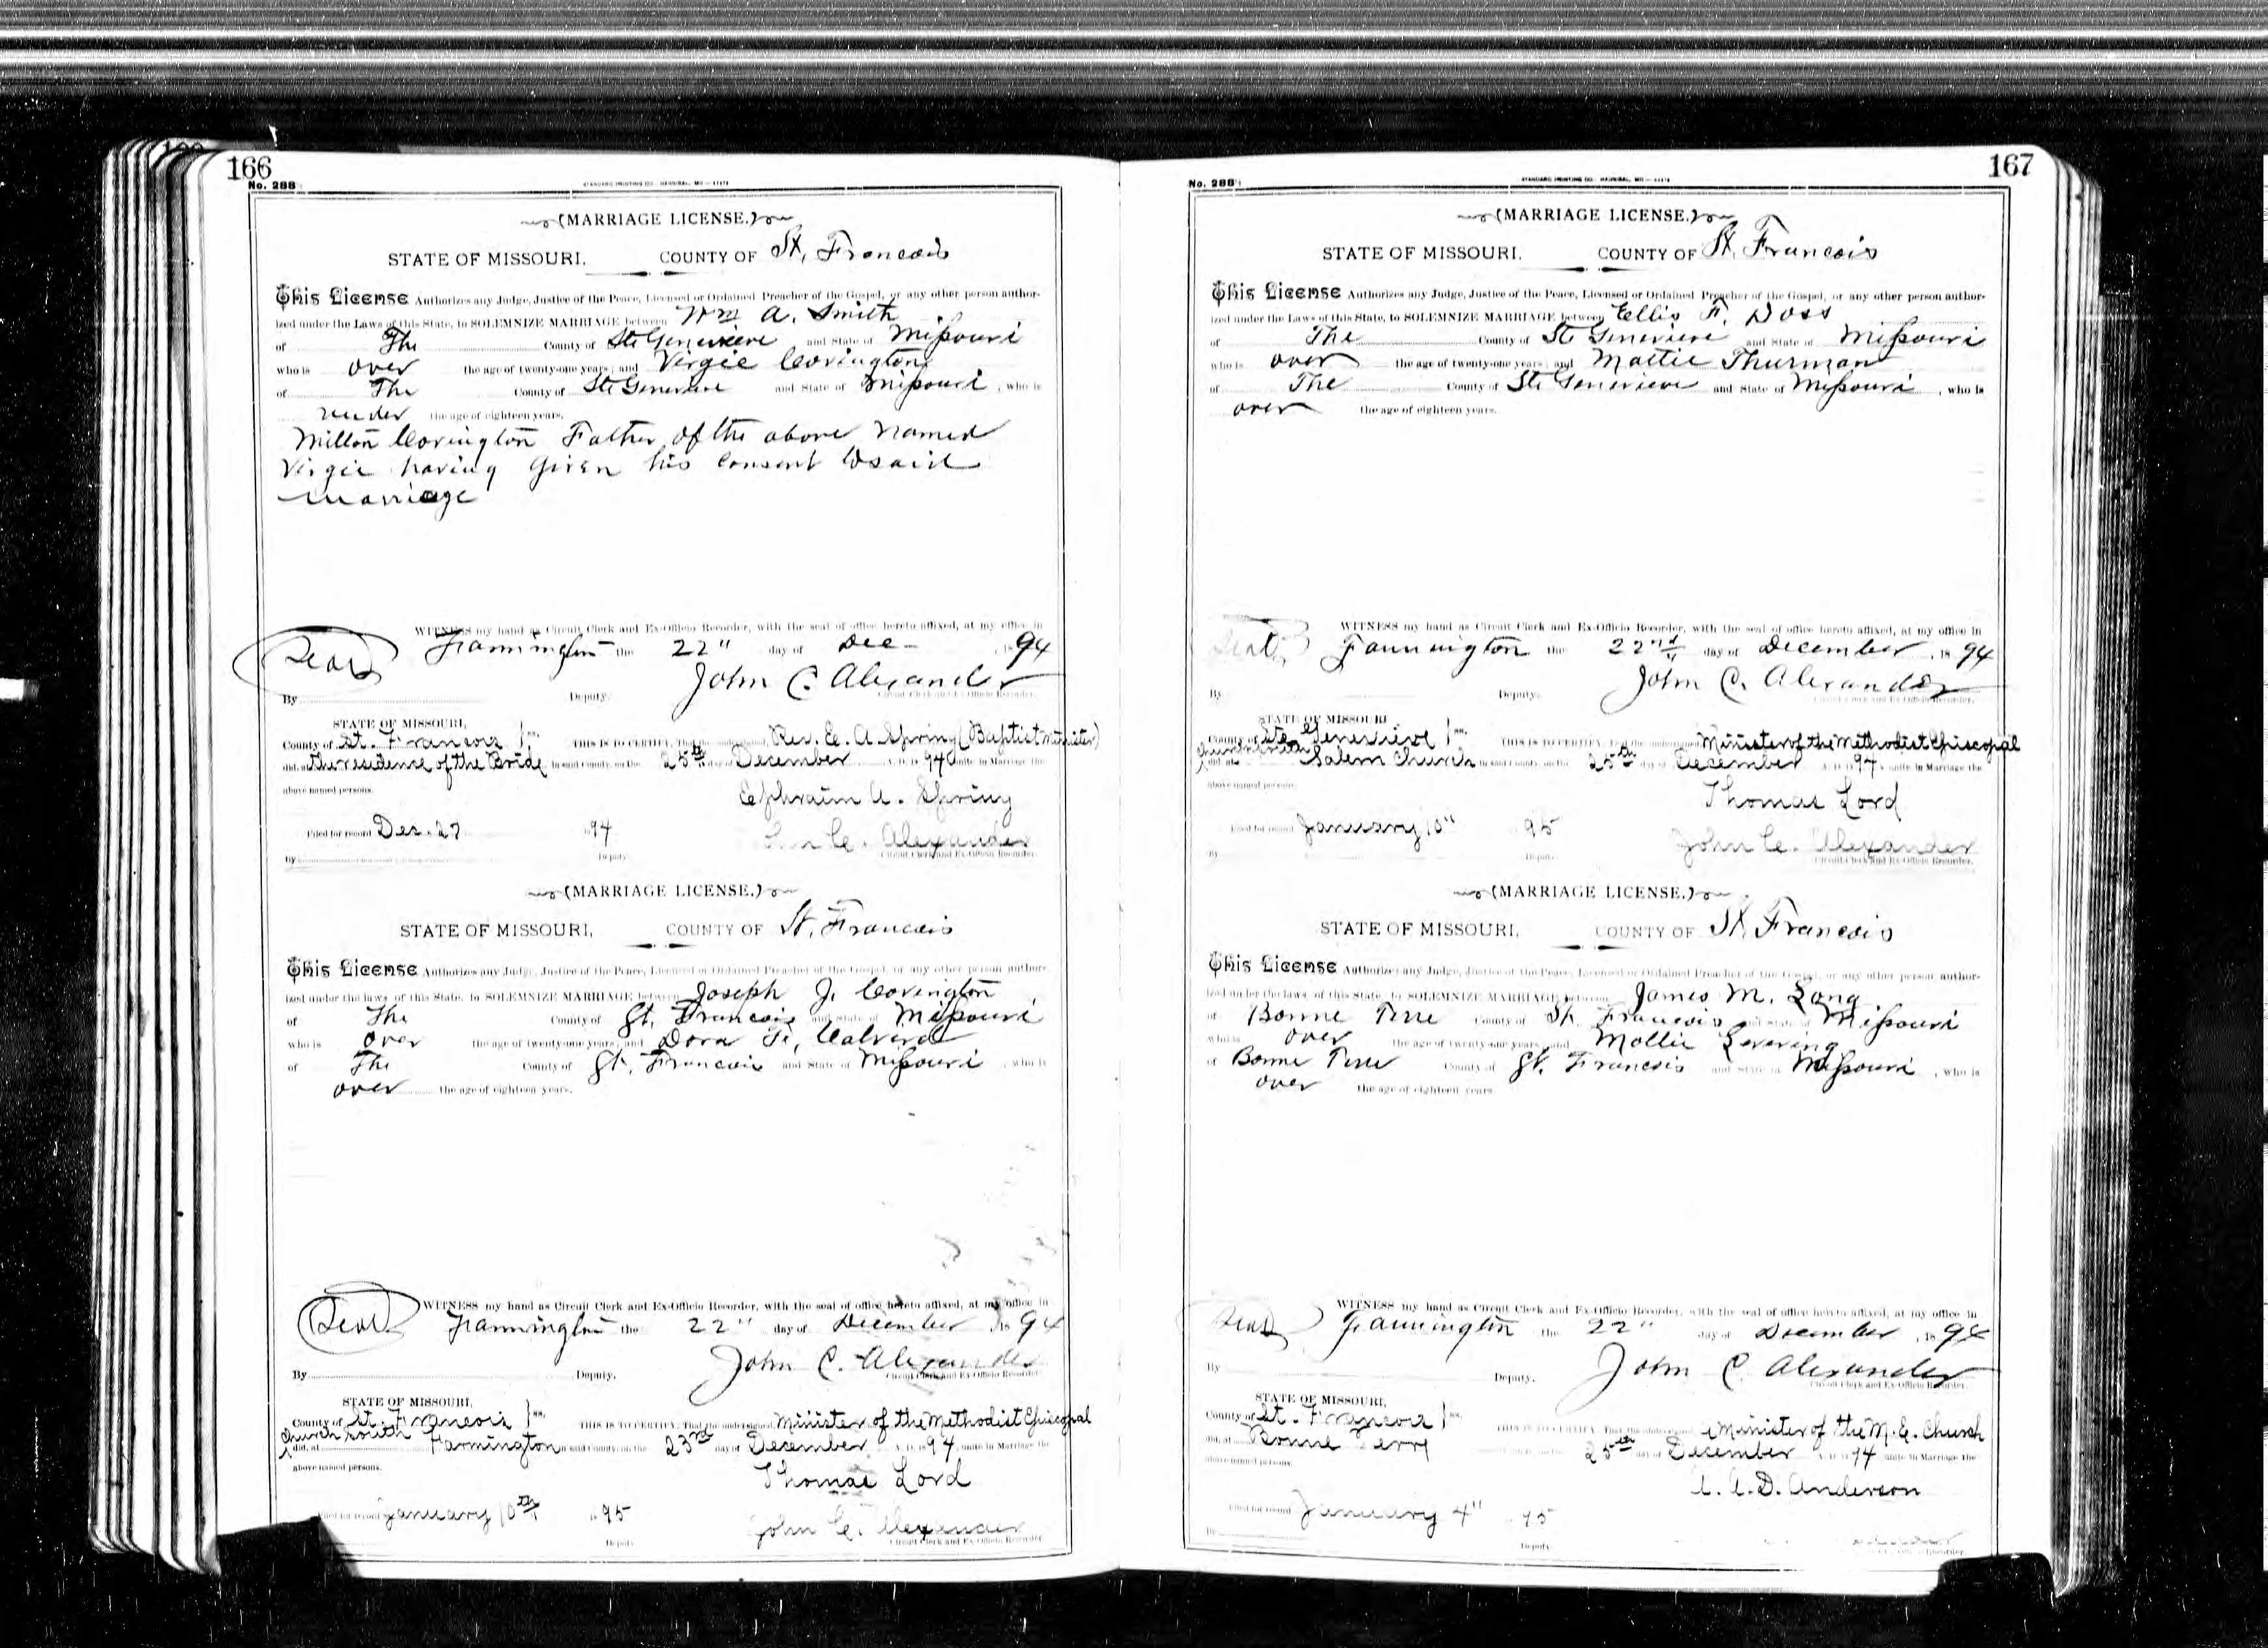 166
No. 288
STANDARD PRINTING CO., HANNIBAL, MO
(MARRIAGE LICENSE.)
STATE OF MISSOURI, COUNTY OF St. Francois
This License Authorizes any Judge, Justice of the Peace, Licensed or Ordained Preacher of the Gospel, or any other person author-
ized under the Laws of this State, to SOLEMNIZE MARRIAGE between Wm A. Smith
of The County of Ste Genevieve and State of Missouri
who is over the age of twenty-one years, and Virgie Covington
of The County of Ste Genevieve and State of Missouri, who is
under the age of eighteen years.
Milton Covington Father of the above named
Virgie having given his consent to said
marriage
WITNESS my hand as Circuit Clerk and Ex-Officio Recorder, with the seal of office hereto affixed, at my office in
Seal Farmington the 22" day of Dec 1894
John C. Alexander
By Deputy. Circuit Clerk and Ex-Officio Recorder.
STATE OF MISSOURI,
County of St. Francois ss. THIS IS TO CERTIFY, That the undersigned Rev. E. A. Spring (Baptist minister)
did, at the residence of the Bride in said County, on the 25th day of December A. D. 1894 unite in Marriage the
above named persons.
Ephraim A. Spring
Filed for record Dec. 27 1894
C. Alexander
By Deputy Circuit Clerk and Ex-Officio Recorder.
(MARRIAGE LICENSE.)
STATE OF MISSOURI, COUNTY OF St. Francois
This License Authorizes any Judge, Justice of the Peace, Licensed or Ordained Preacher of the Gospel, or any other person author-
ized under the laws of this State, to SOLEMNIZE MARRIAGE between Joseph J. Covington
of The County of St. Francois and State of Missouri
who is over the age of twenty-one years, and Dora F. Calvird
of The County of St. Francois and State of Missouri, who is
over the age of eighteen years.
WITNESS my hand as Circuit Clerk and Ex-Officio Recorder, with the seal of office hereto affixed, at my office in
Seal Farmington the 22" day of December 1894
John C. Alexander
By Deputy. Circuit Clerk and Ex-Officio Recorder.
STATE OF MISSOURI,
County of St. Francois ss. THIS IS TO CERTIFY, That the undersigned Minister of the Methodist Episcopal
Church South
did, at Farmington in said County, on the 23rd day of December A. D. 1894, unite in Marriage the
above named persons.
Thomas Lord
Filed for record January 10th 1895
John C. Alexander
Deputy Circuit Clerk and Ex-Officio Recorder.
167
No. 288
STANDARD PRINTING CO., HANNIBAL, MO
(MARRIAGE LICENSE.)
STATE OF MISSOURI, COUNTY OF St. Francois
This License Authorizes any Judge, Justice of the Peace, Licensed or Ordained Preacher of the Gospel, or any other person author-
ized under the Laws of this State, to SOLEMNIZE MARRIAGE between Ellis F. Doss
of The County of Ste Genevieve and State of Missouri
who is over the age of twenty-one years, and Mattie Thurman
of The County of Ste Genevieve and State of Missouri, who is
over the age of eighteen years.
WITNESS my hand as Circuit Clerk and Ex-Officio Recorder, with the seal of office hereto affixed, at my office in
Seal Farmington the 22nd day of December, 1894
John C. Alexander
By Deputy. Circuit Clerk and Ex-Officio Recorder.
STATE OF MISSOURI
County of Ste Genevieve ss. THIS IS TO CERTIFY, That the undersigned Minister of the Methodist Episcopal
Church South
did, at Salem Church in said County, on the 25th day of December A. D. 1894 unite in Marriage the
above named persons.
Thomas Lord
Filed for record January 10" 1895
John C. Alexander
By Deputy. Circuit Clerk and Ex-Officio Recorder.
(MARRIAGE LICENSE.)
STATE OF MISSOURI, COUNTY OF St. Francois
This License Authorizes any Judge, Justice of the Peace, Licensed or Ordained Preacher of the Gospel, or any other person author-
ized under the laws of this State, to SOLEMNIZE MARRIAGE between James M. Long
of Bonne Terre County of St. Francois and State of Missouri
who is over the age of twenty-one years, and Mollie Levering
of Bonne Terre County of St. Francois and State of Missouri, who is
over the age of eighteen years.
WITNESS my hand as Circuit Clerk and Ex-Officio Recorder, with the seal of office hereto affixed, at my office in
Seal Farmington the 22" day of December, 1894
John C. Alexander
By Deputy. Circuit Clerk and Ex-Officio Recorder.
STATE OF MISSOURI,
County of St. Francois ss. THIS IS TO CERTIFY, That the undersigned Minister of the M. E. Church
did, at Bonne Terre 25th day of December A. D. 1894 unite in Marriage the
above named persons.
A. A. D. Anderson
Filed for record January 4" 1895
By Deputy Recorder.